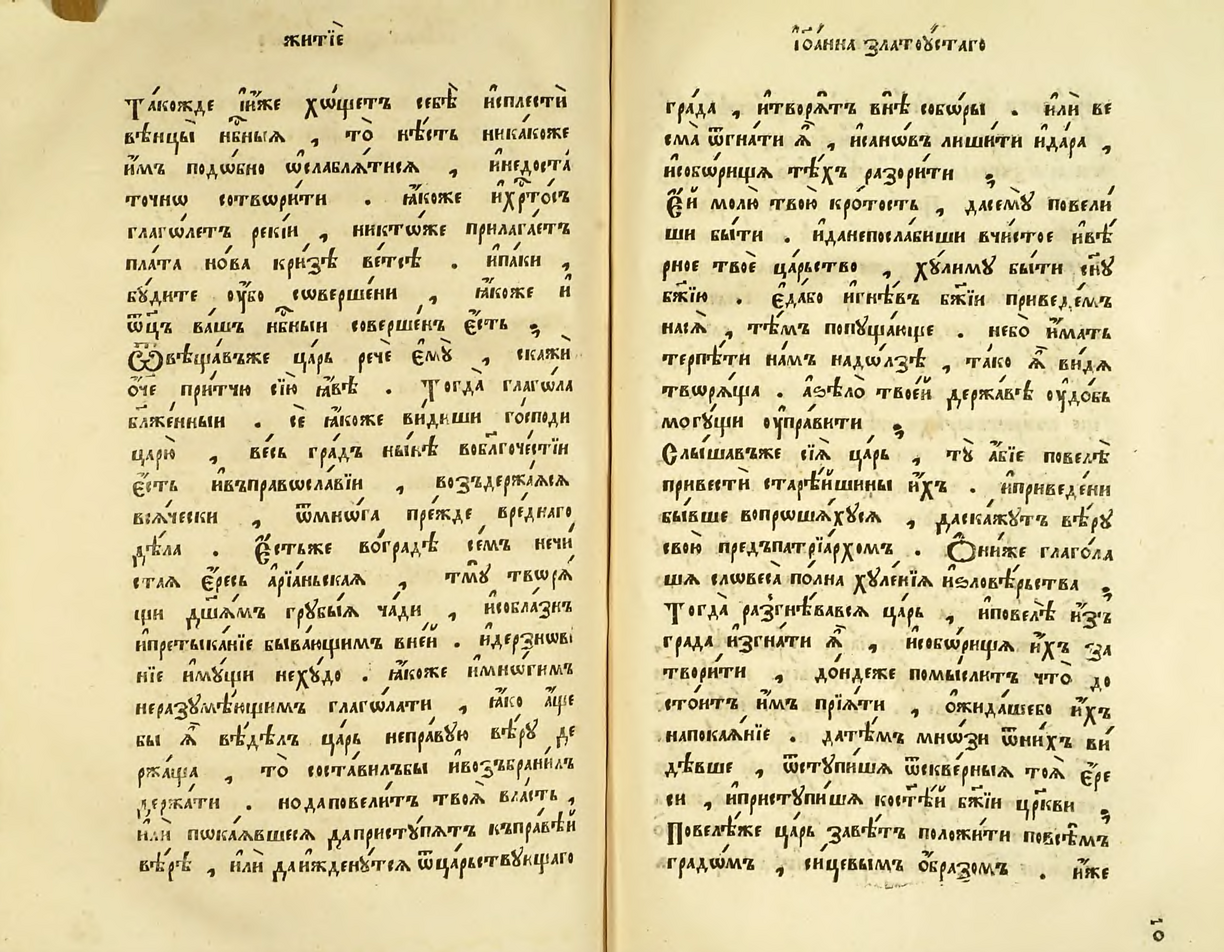 житїѐ
та́кожде ї́иже хо́щетъ себѣ̀ и҆сплестѝ
вѣнцы̀ нб҃ныѧ , то̀ нѣ́сть никакоже
и҆́мъ подѡ́бно ѡ҆слаблѧ́тисѧ , и҆недоста́
точнѡ сотвори́ти . ꙗ҆́коже и҆хрⷭ҇то́съ
глаго́летъ рекі́и , никто́же прилага́етъ
пла́та нова кри́зѣ ве́тсѣ . и҆па́ки ,
бу́дите ᲂу҆́бо сѡверше́ни , ꙗ҆́коже и҆
ѿц҃ъ ва́шъ нбⷭ҇ныи соверше́нъ є҆́сть ;
Ѿвѣща́въже ца́рь речѐ є҆мꙋ̀ , скажѝ
о҆́ч҃е при́тчю сїю̀ ꙗ҆́вѣ . Тогда̀ глаго́ла
блаже́нныи . сѐ ꙗ҆́коже ви́диши го́споди
царю̀ , ве́сь гра́дъ ны́нѣ воблагоче́стїи
є҆́сть и҆въправосла́вїи , воздержа́ѧсѧ
всѧ́чески , ѿмно́га пре́жде вре́днаго
дѣ́ла . Є҆́стьже во́градѣ се́мъ нечи
стаѧ є҆́ресь а҆рїа́ньскаѧ , тмꙋ̀ творѧ́
щи дш҃а́мъ грꙋ́быѧ ча́ди , и҆собла́знъ
и҆претыка́нїе быва́ющимъ вне́й . и҆дерзнове́
нїе и҆мꙋ́щи нехꙋ́до . ꙗ҆́коже и҆мно́гимъ
неразꙋмѣ́ющимъ глаго́лати , ꙗ҆́ко а҆́ще
бы ꙗ҆̀ вѣ́дѣлъ ца́рь непра́вꙋю вѣ́рꙋ де
ржа́ща , то̀ соста́вилъбы и҆возъбрани́лъ
держа́ти . нодаповели́тъ твоѧ̀ вла́сть ,
и҆лѝ пока́ѧвшесѧ дапристꙋ́пѧтъ къпра́вѣй
вѣ́рѣ , и҆лѝ даи҆жденꙋ́тсѧ ѿца́рьствꙋющаго
і҆ѡа́нна златоꙋ́стаго
гра́да , и҆творѧ́тъ внѣ̀ собо́ры . и҆лѝ ве
сма̀ ѿгна́ти ꙗ҆̀ , и҆сано́въ лиши́ти и҆да́ра ,
и҆собо́рищѧ тѣ́хъ разори́ти ;
Є҆́й молю̀ твою̀ кро́тость , дасемꙋ̀ повели́
ши бы́ти . и҆данепосла́биши вчи́стое и҆вѣ́
рное твоѐ ца́рьство , хꙋ́лимꙋ бы́ти сн҃ꙋ
бж҃їю . є҆да́бо и҆гнѣ́въ бж҃їи приведе́мъ
насѧ̀ , тѣ́мъ попꙋща́юще . не́бо и҆́мать
терпѣ́ти на́мъ надо́лзѣ , та́ко ꙗ҆̀ ви́дѧ
творѧ́ща . а҆ѕѣло̀ твое́й держа́вѣ ᲂу҆до́бь
могꙋ́щи ᲂу҆пра́вити ;
Слы́шавъже сїѧ̀ ца́рь , тꙋ̀ а҆́бїе повелѣ̀
привестѝ старѣ́йшины и҆́хъ . и҆приведе́ни
бы́вше вопроша́хꙋсѧ , даска́жꙋтъ вѣ́рꙋ
свою̀ предъпатрїа́рхомъ . Ѻ҆ни́же глаго́ла
шѧ словеса̀ по́лна хꙋле́нїѧ и҆ѕловѣ́рьства ;
Тогда̀ разгнѣ́вавсѧ ца́рь , и҆повелѣ̀ и҆́зъ
града и҆згна́ти ꙗ҆̀ , и҆собо́рищѧ и҆́хъ за
твори́ти , до́ндеже помы́слитъ что̀ до
сто́итъ и҆́мъ прїѧ́ти , ѡ҆жида́шебо и҆́хъ
напокаѧ́нїе . датѣ́мъ мно́зи ѿни́хъ ви́
дѣвше , ѿстꙋпи́шѧ ѿскве́рныѧ тоѧ̀ є҆́ре
си , и҆пристꙋпи́шѧ костѣ́й бж҃їи цр҃кви ;
Повелѣ́же ца́рь завѣ́тъ положи́ти повсѣ́мъ
градо́мъ , си́цевымъ ѻ҆́бразомъ . и҆́же
о҃